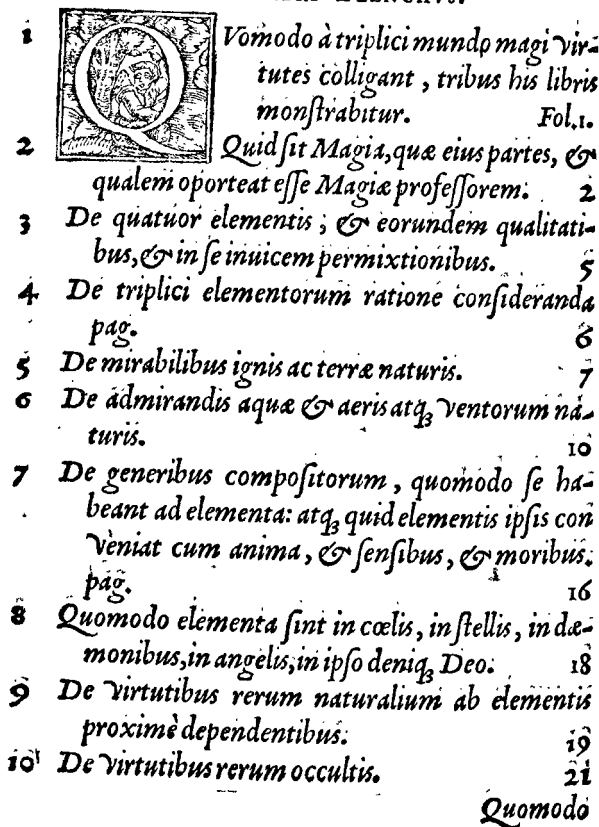 1 QVomodo à triplici mundo magi vir-
tutes colligant, tribus his libris
monſtrabitur. Fol.1.
2 Quid ſit Magia, quæ eius partes, &
qualem oporteat eſſe Magiæ profeſſorem. 2
3 De quatuor elementis; & eorundem qualitati-
bus, & in ſe inuicem permixtionibus. 5
4 De triplici elementorum ratione conſideranda
pag. 6
5 De mirabilibus ignis ac terræ naturis. 7
6 De admirandis aquæ & aeris atq; ventorum na-
turis. 10
7 De generibus compoſitorum, quomodo ſe ha-
beant ad elementa: atq; quid elementis ipſis con
veniat cum anima, & ſenſibus, & moribus.
pag. 16
8 Quomodo elementa ſint in cœlis, in ſtellis, in dæ-
monibus, in angelis, in ipſo deniq; Deo. 18
9 De virtutibus rerum naturalium ab elementis
proximè dependentibus. 19
10 De virtutibus rerum occultis. 21
Quomodo